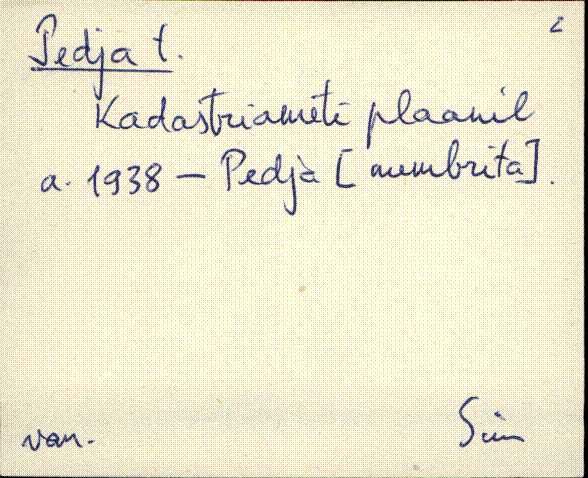 Pedja t.
Kadastriameti plaanil
a. 1938 – Pedja [numbrita].
van.